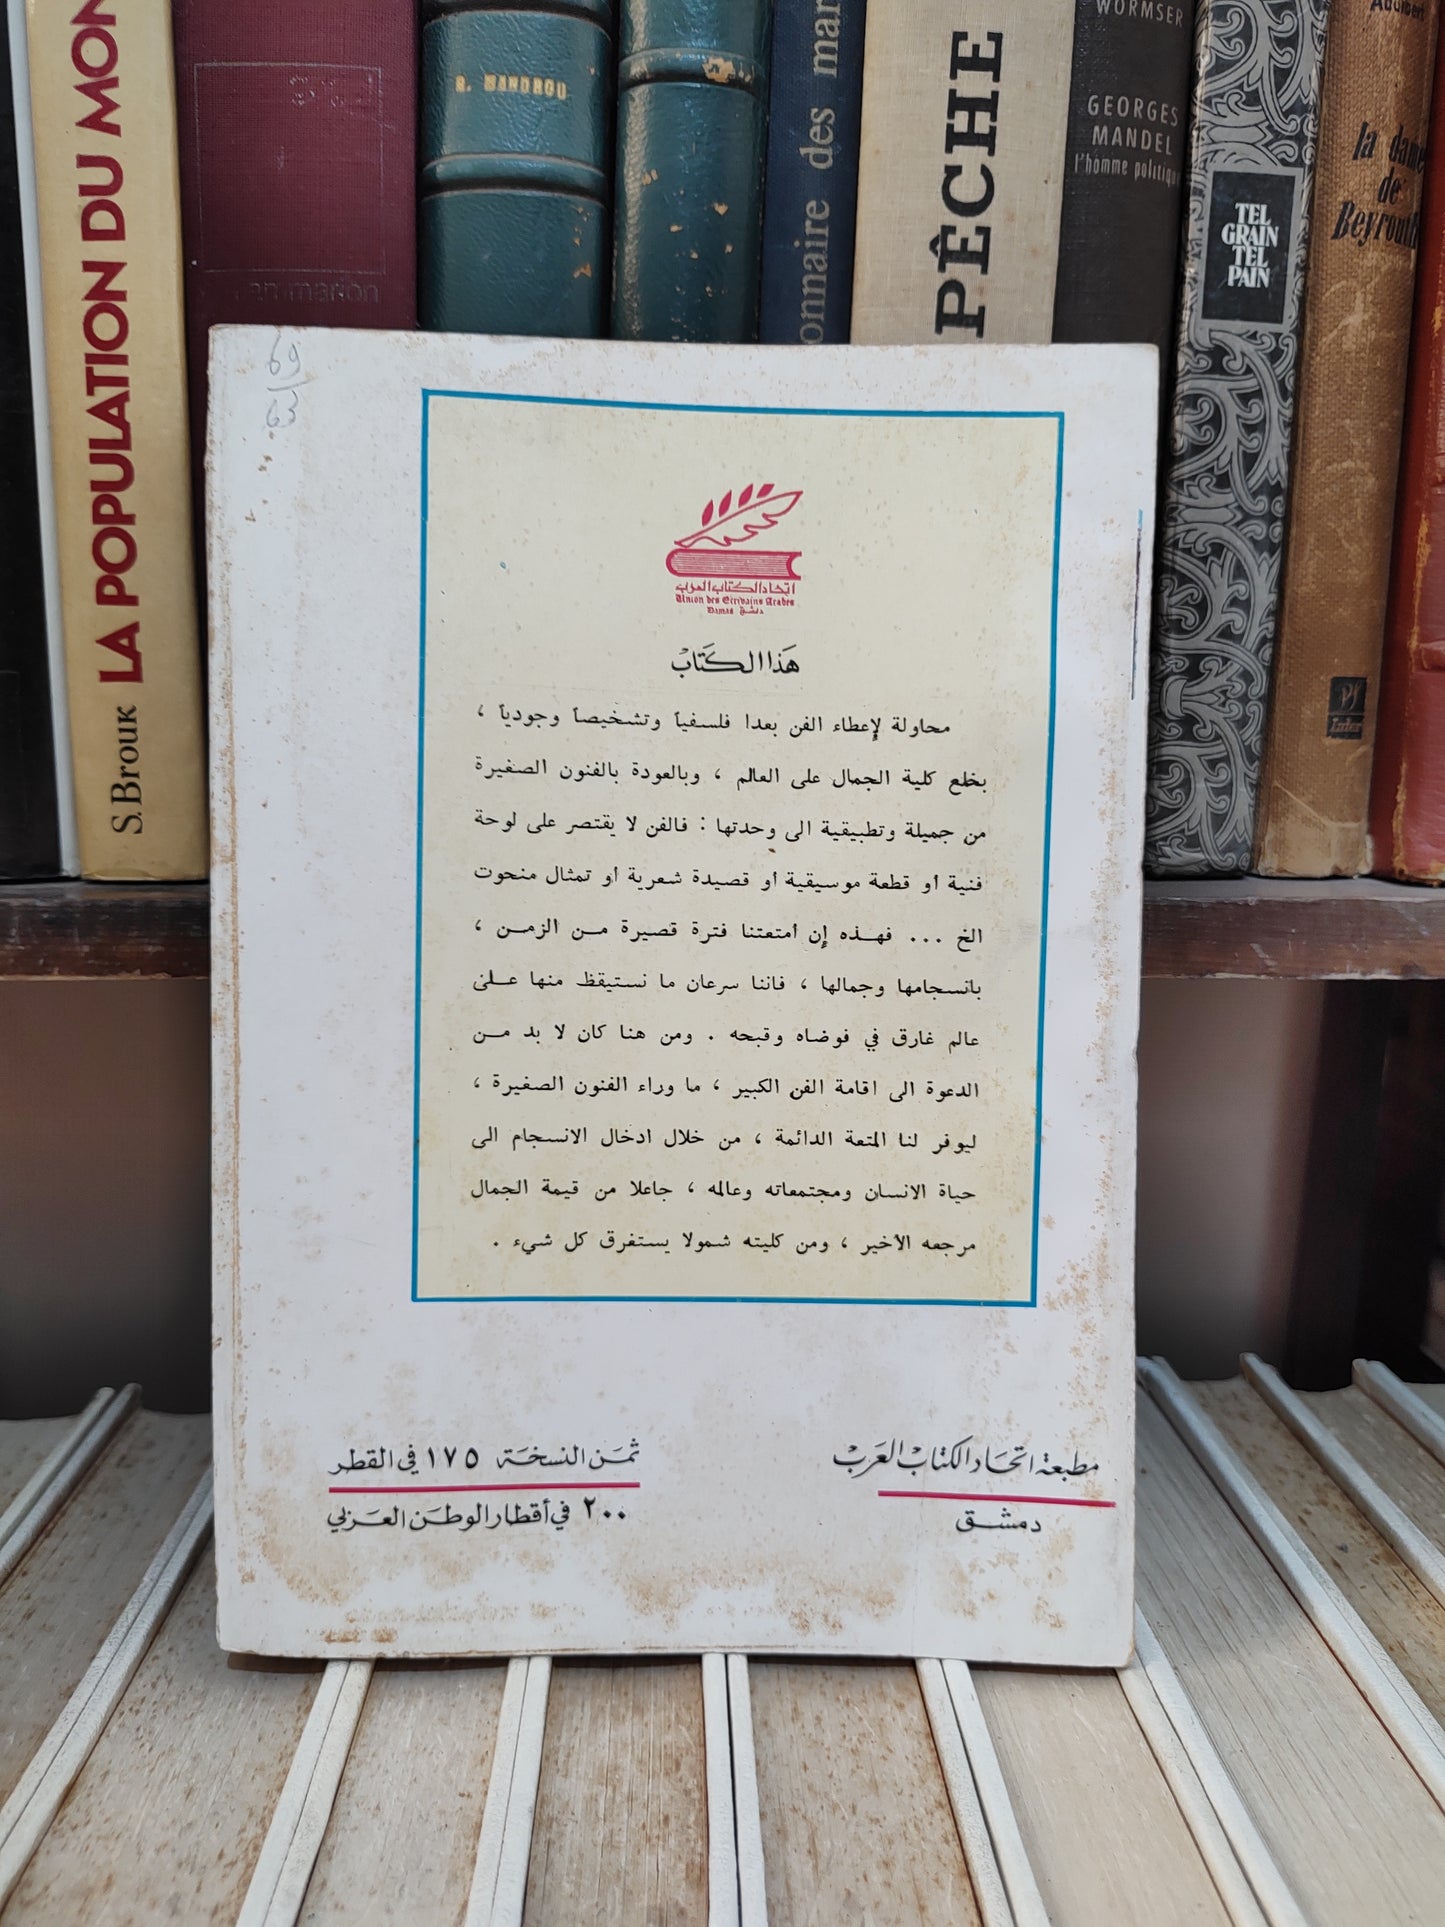 LA POPULATION DU MON
S. Brouk
R. MANDROU
onnaire des mar
PÊCHE
WORMSER
GEORGES
MANDEL
l'homme politiqu
TEL
GRAIN
TEL
PAIN
la dame
de
Beyrouth
69
63
اتحاد الكتاب العرب
Union des Ecrivains Arabes
Damas دمشق
هَذا الكَتابْ
محاولة لإعطاء الفن بعدا فلسفياً وتشخيصاً وجودياً ،
بخلع كلية الجمال على العالم ، وبالعودة بالفنون الصغيرة
من جميلة وتطبيقية الى وحدتها : فالفن لا يقتصر على لوحة
فنية أو قطعة موسيقية أو قصيدة شعرية أو تمثال منحوت
الخ ... فهذه إن أمتعتنا فترة قصيرة من الزمن ،
بانسجامها وجمالها ، فاننا سرعان ما نستيقظ منها على
عالم غارق في فوضاه وقبحه . ومن هنا كان لا بد من
الدعوة الى اقامة الفن الكبير ، ما وراء الفنون الصغيرة ،
ليوفر لنا المتعة الدائمة ، من خلال ادخال الانسجام الى
حياة الانسان ومجتمعاته وعالمه ، جاعلا من قيمة الجمال
مرجعه الأخير ، ومن كليته شمولا يستغرق كل شيء .
مطبعة اتحاد الكتاب العرب
دمشق
ثمن النسخة ١٧٥ في القطر
٢٠٠ في أقطار الوطن العربي